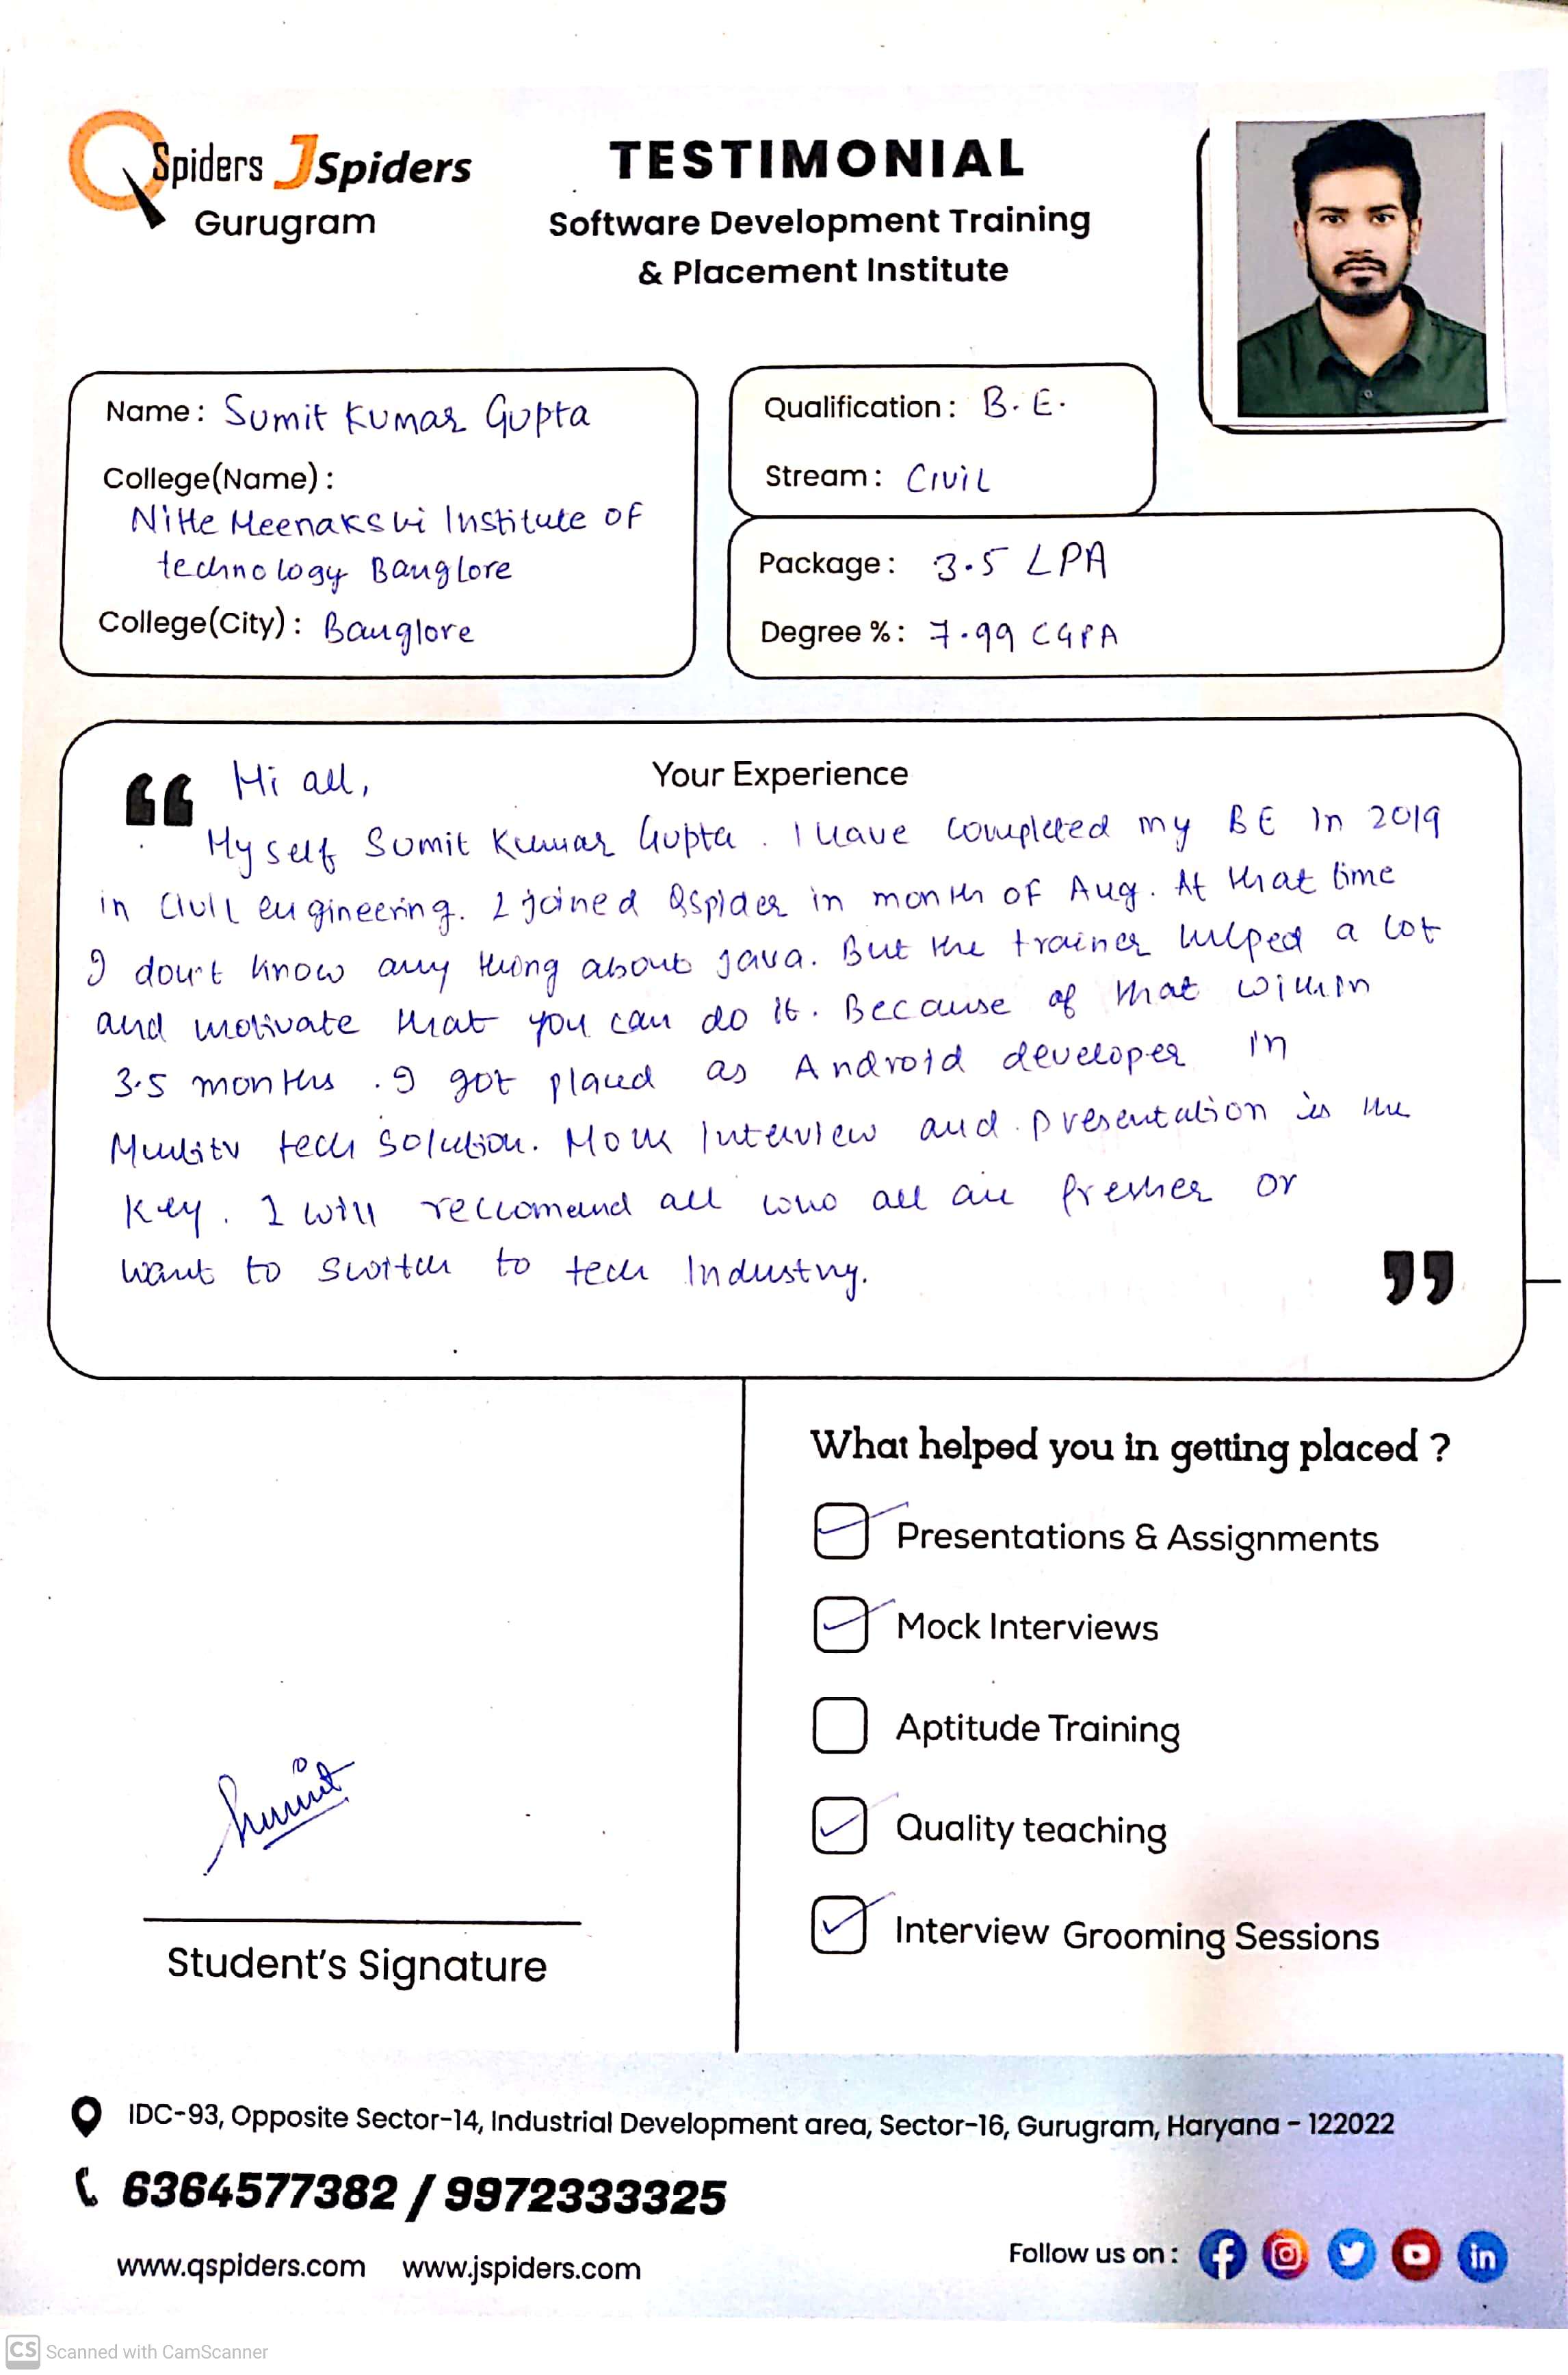 QSpiders JSpiders
Gurugram
TESTIMONIAL
Software Development Training
& Placement Institute
Name : Sumit Kumar Gupta
College(Name) :
Nitte Meenakshi Institute of
technology Banglore
College(City) : Banglore
Qualification : B.E.
Stream : Civil
Package : 3.5 LPA
Degree % : 7.99 CGPA
Your Experience
“ Hi all,
Myself Sumit Kumar Gupta. I have completed my BE in 2019
in Civil engineering. I joined Qspider in month of Aug. At that time
I don't know any thing about java. But the trainer helped a lot
and motivate that you can do it. Because of that within
3.5 months . I got placed as Android developer in
tech solution. Mock Interview and presentation is the
Key. I will reccomend all who all are fresher or
want to switch to tech Industry. ”
What helped you in getting placed ?
Presentations & Assignments
Mock Interviews
Aptitude Training
Quality teaching
Interview Grooming Sessions
Sumit
Student's Signature
IDC-93, Opposite Sector-14, Industrial Development area, Sector-16, Gurugram, Haryana - 122022
6364577382 / 9972333325
www.qspiders.com www.jspiders.com
Follow us on :
CS Scanned with CamScanner